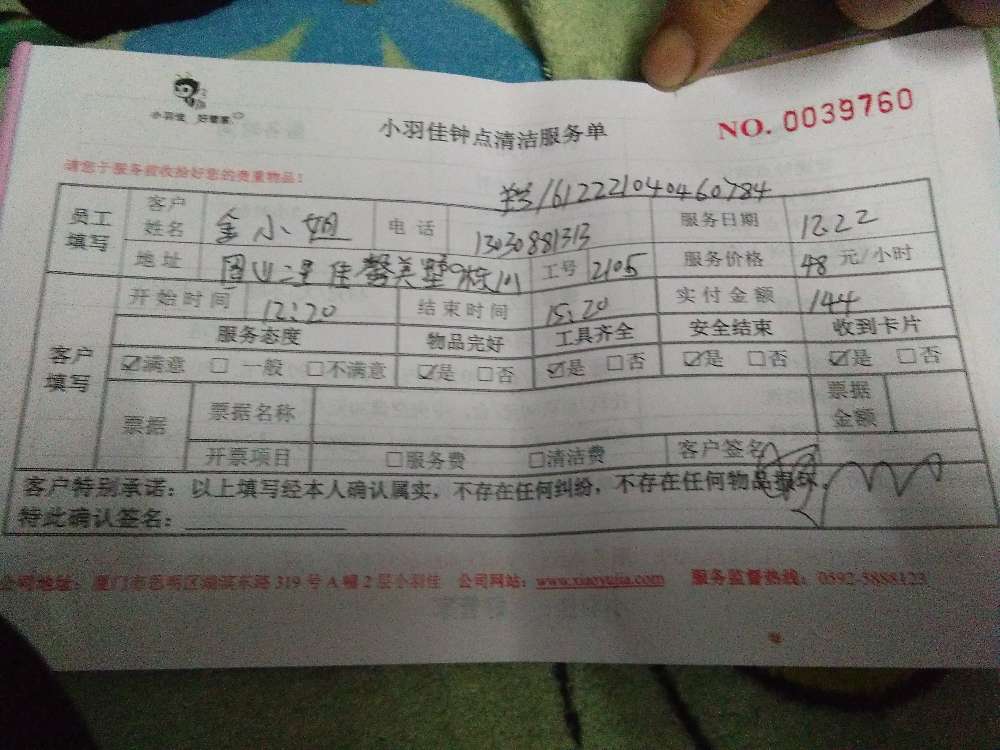 小羽佳 好管家
小羽佳钟点清洁服务单
NO. 0039760
请您于服务前收拾好您的贵重物品！
1612221040460784
员工填写 客户姓名 金小姐 电话 13030881313 服务日期 12.22
地址 工号 2105 服务价格 48 元/小时
开始时间 12:20 结束时间 15:20 实付金额 144
客户填写 服务态度 物品完好 工具齐全 安全结束 收到卡片
☑满意 □一般 □不满意 ☑是 □否 ☑是 □否 ☑是 □否 ☑是 □否
票据 票据名称 票据金额
开票项目 □服务费 □清洁费 客户签名
客户特别承诺：以上填写经本人确认属实，不存在任何纠纷，不存在任何物品损坏，
特此确认签名：
公司地址：厦门市思明区湖滨东路319号A幢2层小羽佳 公司网站：www.xiaoyujia.com 服务监督热线：0592-5888123